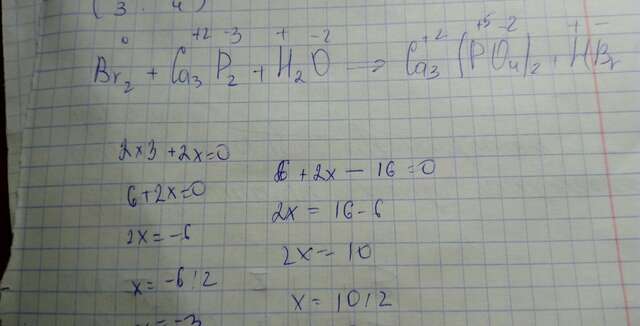 (3. 4)
0 +2 -3 + -2 +2 +5 -2 + -
Br2 + Ca3 P2 + H2O → Ca3 (PO4)2 + HBr
2x3 + 2x = 0
6 + 2x = 0
2x = -6
x = -6 : 2
x = -3
6 + 2x - 16 = 0
2x = 16 - 6
2x = 10
x = 10 : 2